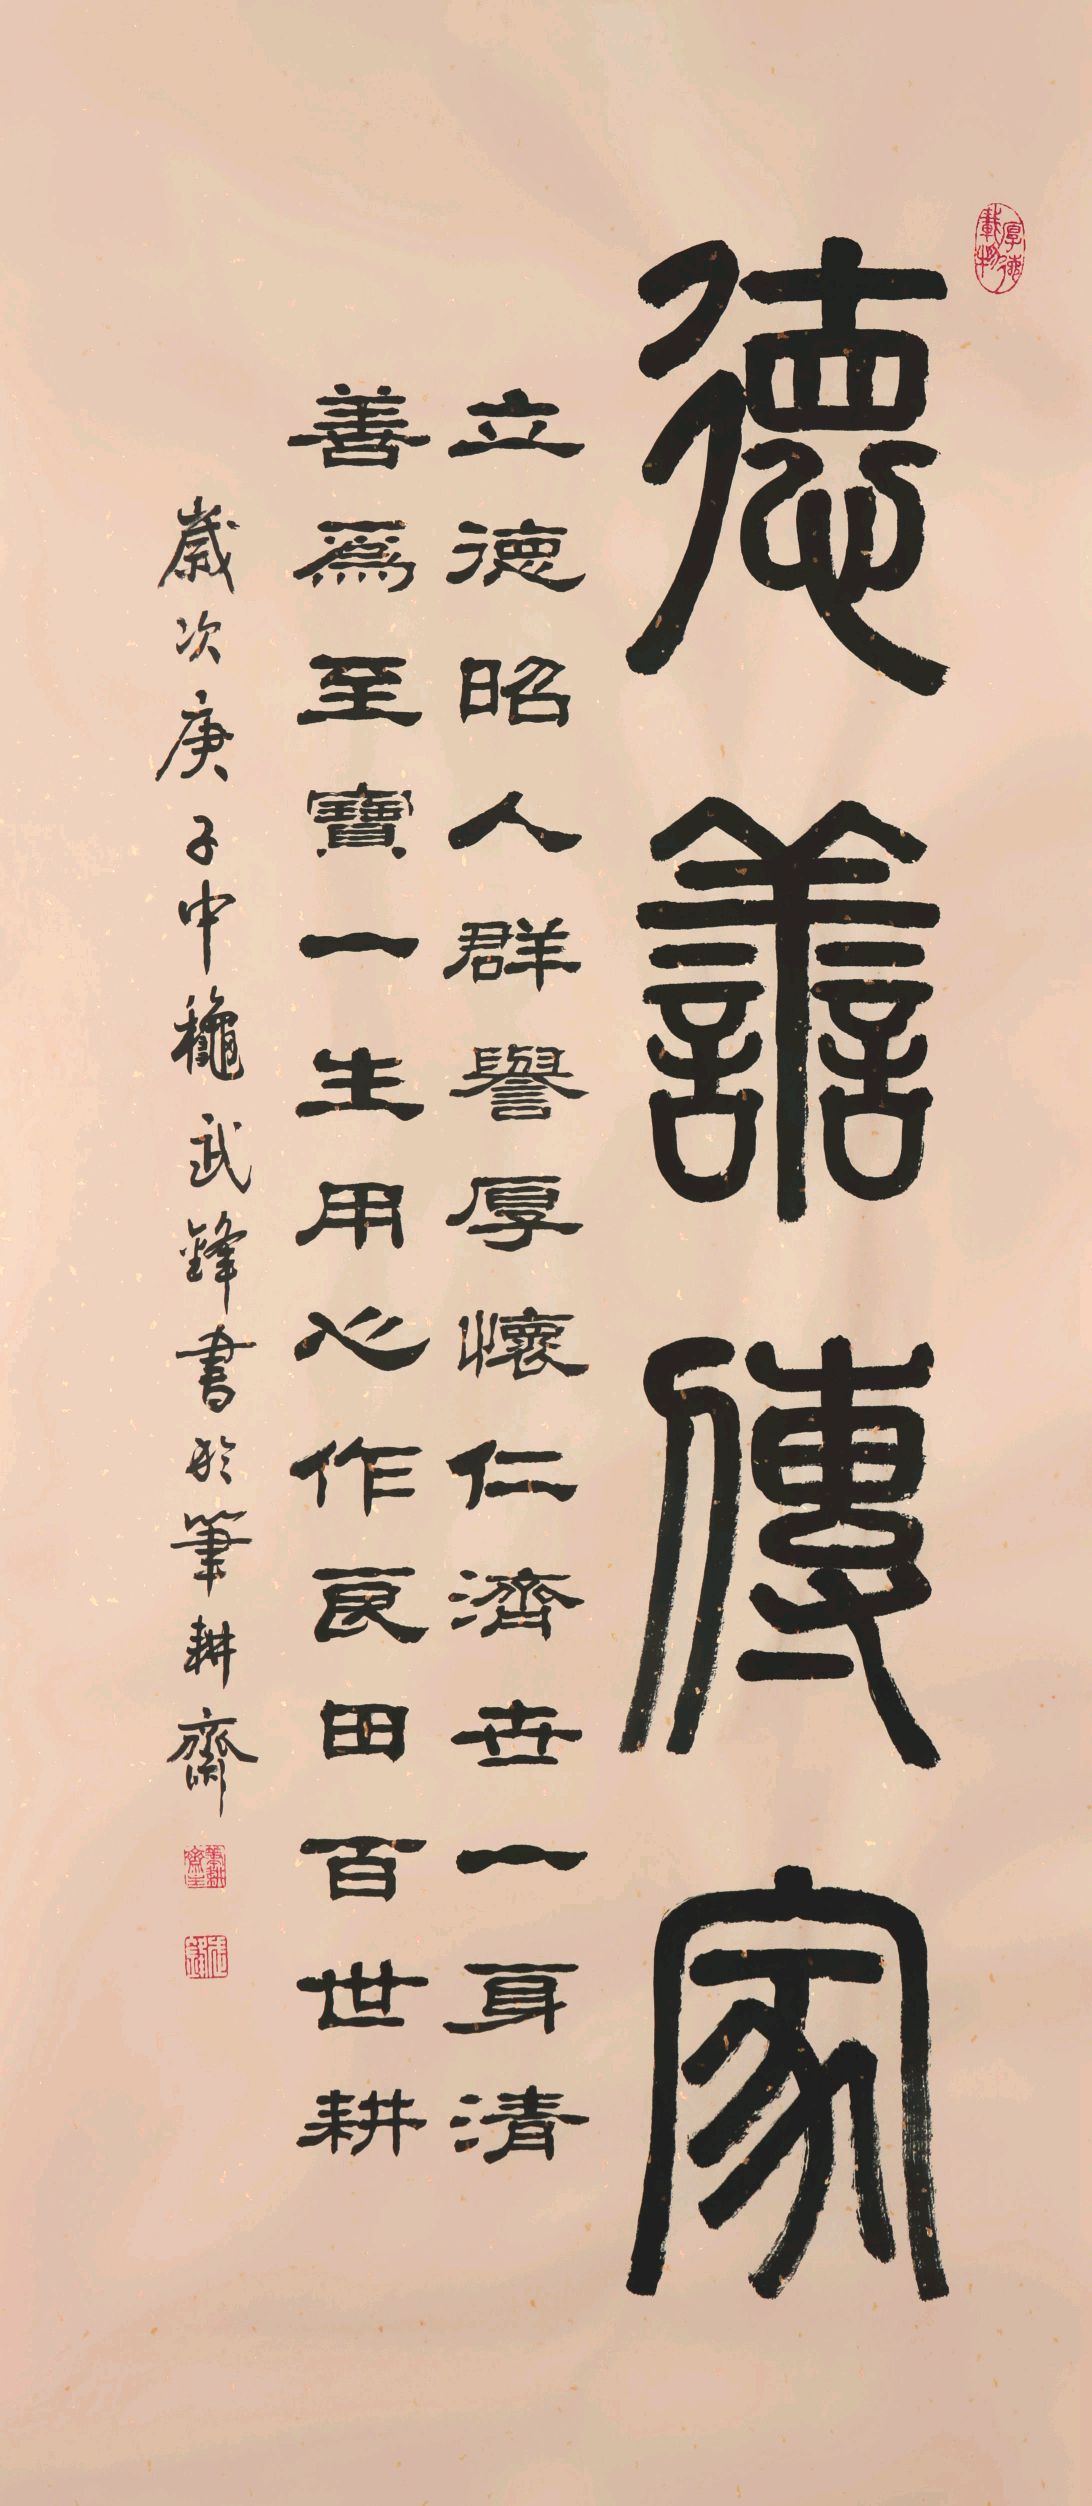 厚德載物
德善傳家
立德昭人群譽厚懷仁濟世一身清
善為至寶一生用心作良田百世耕
歲次庚子中龝武鋒書於筆耕齋